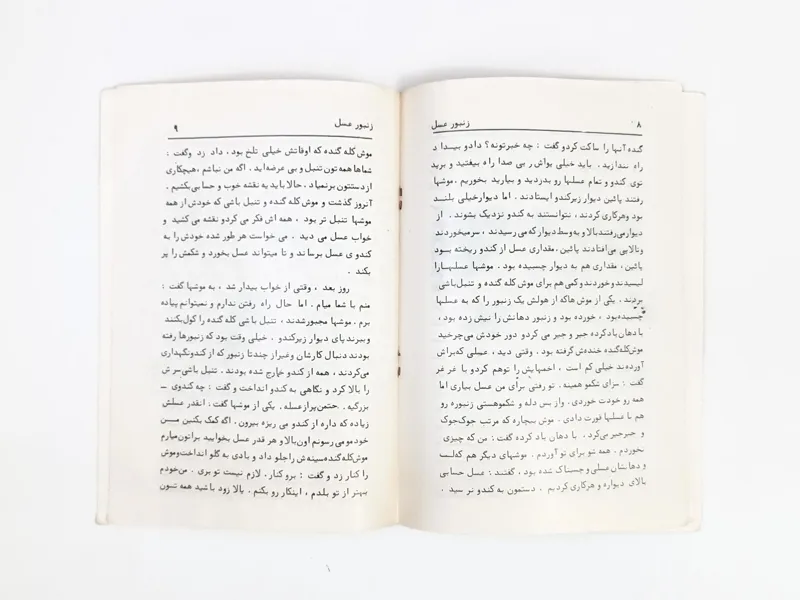 ۸ زنبور عسل
گنده آنها را ساکت کردو گفت : چه خبرتونه؟ دادو بیـداد
راه نندازید . باید خیلی یواش و بی صدا راه بیفتید و برید
توی کندو و تمام عسلها رو بدزدید و بیارید بخوریم. موشها
رفتند پائین دیوار زیرکندو ایستادند . اما دیوارخیلی بلنـد
بود وهرکاری کردند ، نتوانستند به کندو نزدیک بشوند . از
دیوارمیرفتندبالا و به وسط دیوار که می رسیدند ، سرمیخوردند
وتالاپی می‌افتادند پائین، مقداری عسل از کندو ریخته بـود
پائین ، مقداری هم به دیوار چسبیده بود . موشها عسلهـارا
لیسیدند و خوردند و کمی هم برای موش کله گنده و تنبل‌باشی
بردند . یکی از موش هاکه از هولش یک زنبور را که به عسلها
چسبیده‌بود ، خورده بود و زنبور دهانش را نیش زده بود ،
با دهان بادکرده جیر و جیر می کردو دور خودش می‌چرخید
موش‌کله‌گنده خنده‌ش گرفته بود . وقتی دید ، عسلی که‌براش
آورده‌ند خیلی کم است ، اخمهایش را توهم کردو با غر غر
گفت : برای شکمو همینه . تو رفتی برای من عسل بیاری اما
همه رو خودت خوردی . واز بس دله و شکموهستی زنبوره رو
هم با عسلها قورت دادی . موش بیچاره که مرتب جوک‌جوک
و جیرجیر می‌کرد . با دهان باد کرده گفت : من که چیزی
نخوردم . همه شو برای تو آوردم . موشهای دیگر هم که‌لب
و دهانشان عسلی و چسبناک شده بود ، گفتنـد : عسل حسابی
بالای دیواره و هرکاری کردیم . دستمون به کندو نر سید .
زنبور عسل ۹
موش کله گنده که اوقاتش خیلی تلخ بود ، داد زد وگفت :
شماها همه تون تنبل و بی عرضه‌اید . اگه من نباشم ، هیچکاری
ازدستتون برنمیاد . حالا باید یه نقشه خوب و حسابی‌بکشیم .
آنروز گذشت و موش کله گنده و تنبل باشی که خودش از همه
موشها تنبل تر بود ، همه اش فکر می کردو نقشه می کشید و
خواب عسل می دید . می خواست هر طور شده خودش را به
کندو ی عسل برساند و تا میتواند عسل بخورد و شکمش را پر
بکند .
روز بعد ، وقتی از خواب بیدار شد ، به موشها گفت :
منم با شما میام . اما حال راه رفتن ندارم و نمیتوانم پیاده
برم . موشها مجبورشدند ، تنبل باشی کله گنده را کول‌بکنند
و ببرند پای دیوار زیرکندو . خیلی وقت بود که زنبورها رفته
بودند دنبال کارشان وغیراز چندتا زنبور که از کندونگهداری
می‌کردند ، همه از کندو خارج شده بودند . تنبل باشی‌سرش
را بالا کرد و نگاهی به کندو انداخت و گفت : چه کندوی
بزرگیه . حتمن‌پرازعسله . یکی از موشها گفت : انقدر عسلش
زیاده که داره از کندو می ریزه بیرون . اگه کمک بکنین مـن
خودمو می رسونم اون‌بالا و هر قدر عسل بخوایید براتون‌میارم
موش‌کله‌گنده‌سینه‌ش راجلو داد و بادی به گلو انداخت‌وموش
را کنار زد و گفت : برو کنار . لازم نیست تو بری . من‌خودم
بهتر از تو بلدم ، اینکار رو بکنم . یالا زود باشید همه تـون